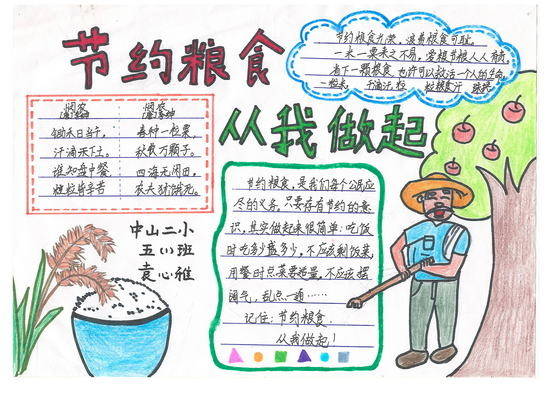 节约粮食
从我做起
节约粮食光荣，浪费粮食可耻。
一米一粟来之不易，爱粮节粮人人有责。
省下一颗粮食，也许可以救活一个人的生命。
一粒米，千滴汗，粒粒粮食汗
悯农
悯农
锄禾日当午，
春种一粒粟，
汗滴禾下土。
秋收万颗子。
谁知盘中餐，
四海无闲田，
粒粒皆辛苦
农夫犹饿死。
中山二小
五(1)班
袁心雅
节约粮食，是我们每个公民应
尽的义务，只要存有节约的意
识，其实做起来很简单：吃饭
时吃多少盛多少，不应该剩饭菜，
用餐时点菜要适量，不应该摆
阔气，乱点一通……
记住：节约粮食，
从我做起！